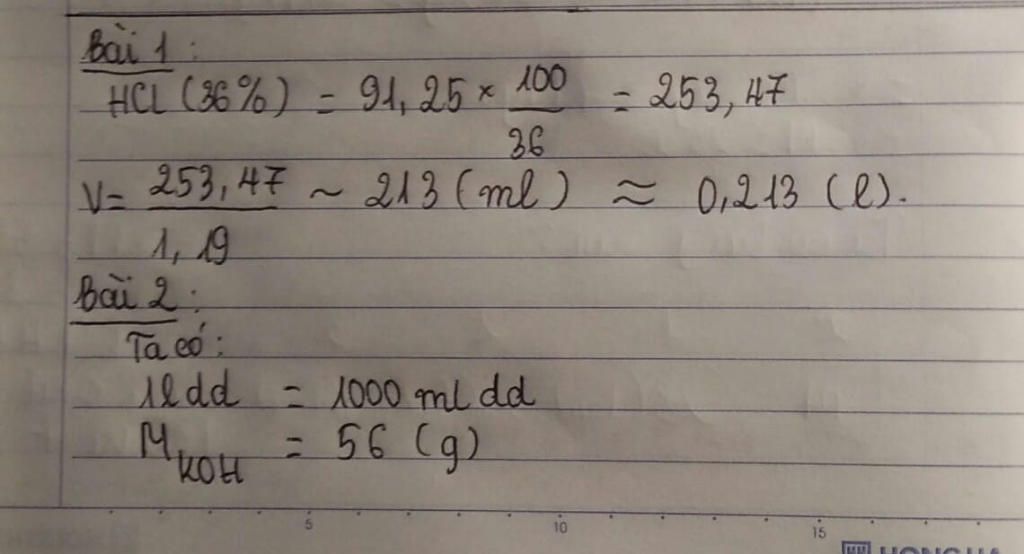 Bài 1 :
HCl (36%) = 91,25 × 100/36 = 253,47
V = 253,47/1,19 ~ 213 (ml) ≈ 0,213 (l).
Bài 2 :
Ta có :
1l dd = 1000 ml dd
M KOH = 56 (g)
5 10 15
HONG HA